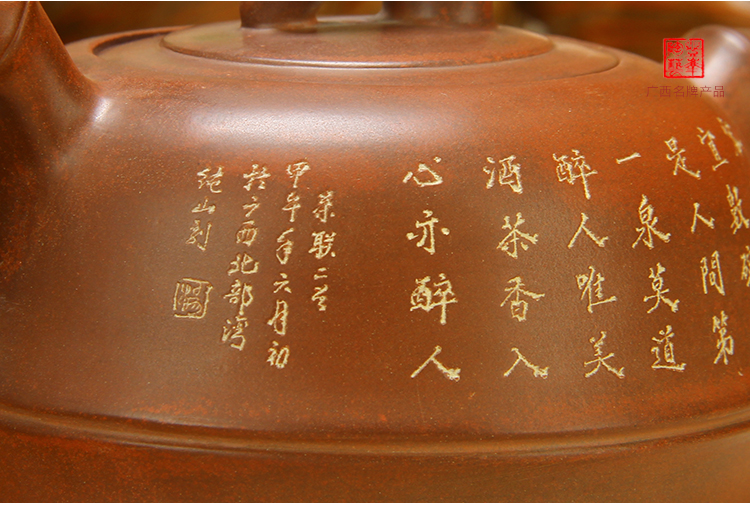 广西名牌产品
是人間第
一泉莫道
醉人唯美
酒茶香入
心亦醉人
茶联二首
甲午年六月初
於广西北部湾
山刻